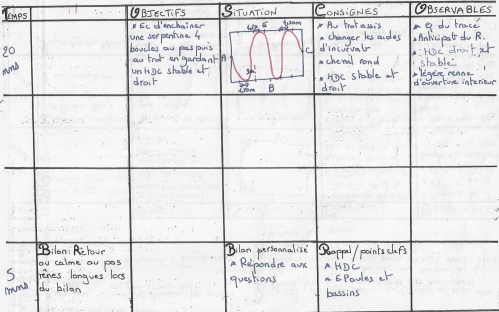 TEMPS
OBJECTIFS
SITUATION
CONSIGNES
OBSERVABLES
20
mns
* Ec d'enchaîner
une serpentine 4
boucles au pas puis
au trot en gardant
un HDC stable et
droit
E
A
C
B
* Au trot assis
* changer les aides
d'incurvat°
* cheval rond
* HDC stable et
droit
* Q du tracé
* Anticipat° du R.
* HDC droit et
stable
* légère renne
d'ouverture interieur
5
mns.
Bilan: Retour
au calme au pas
rênes longues lors
du bilan
Bilan personnalisé
* Répondre aux
questions
Rappel/points clefs
* HDC
* EPaules et
bassins